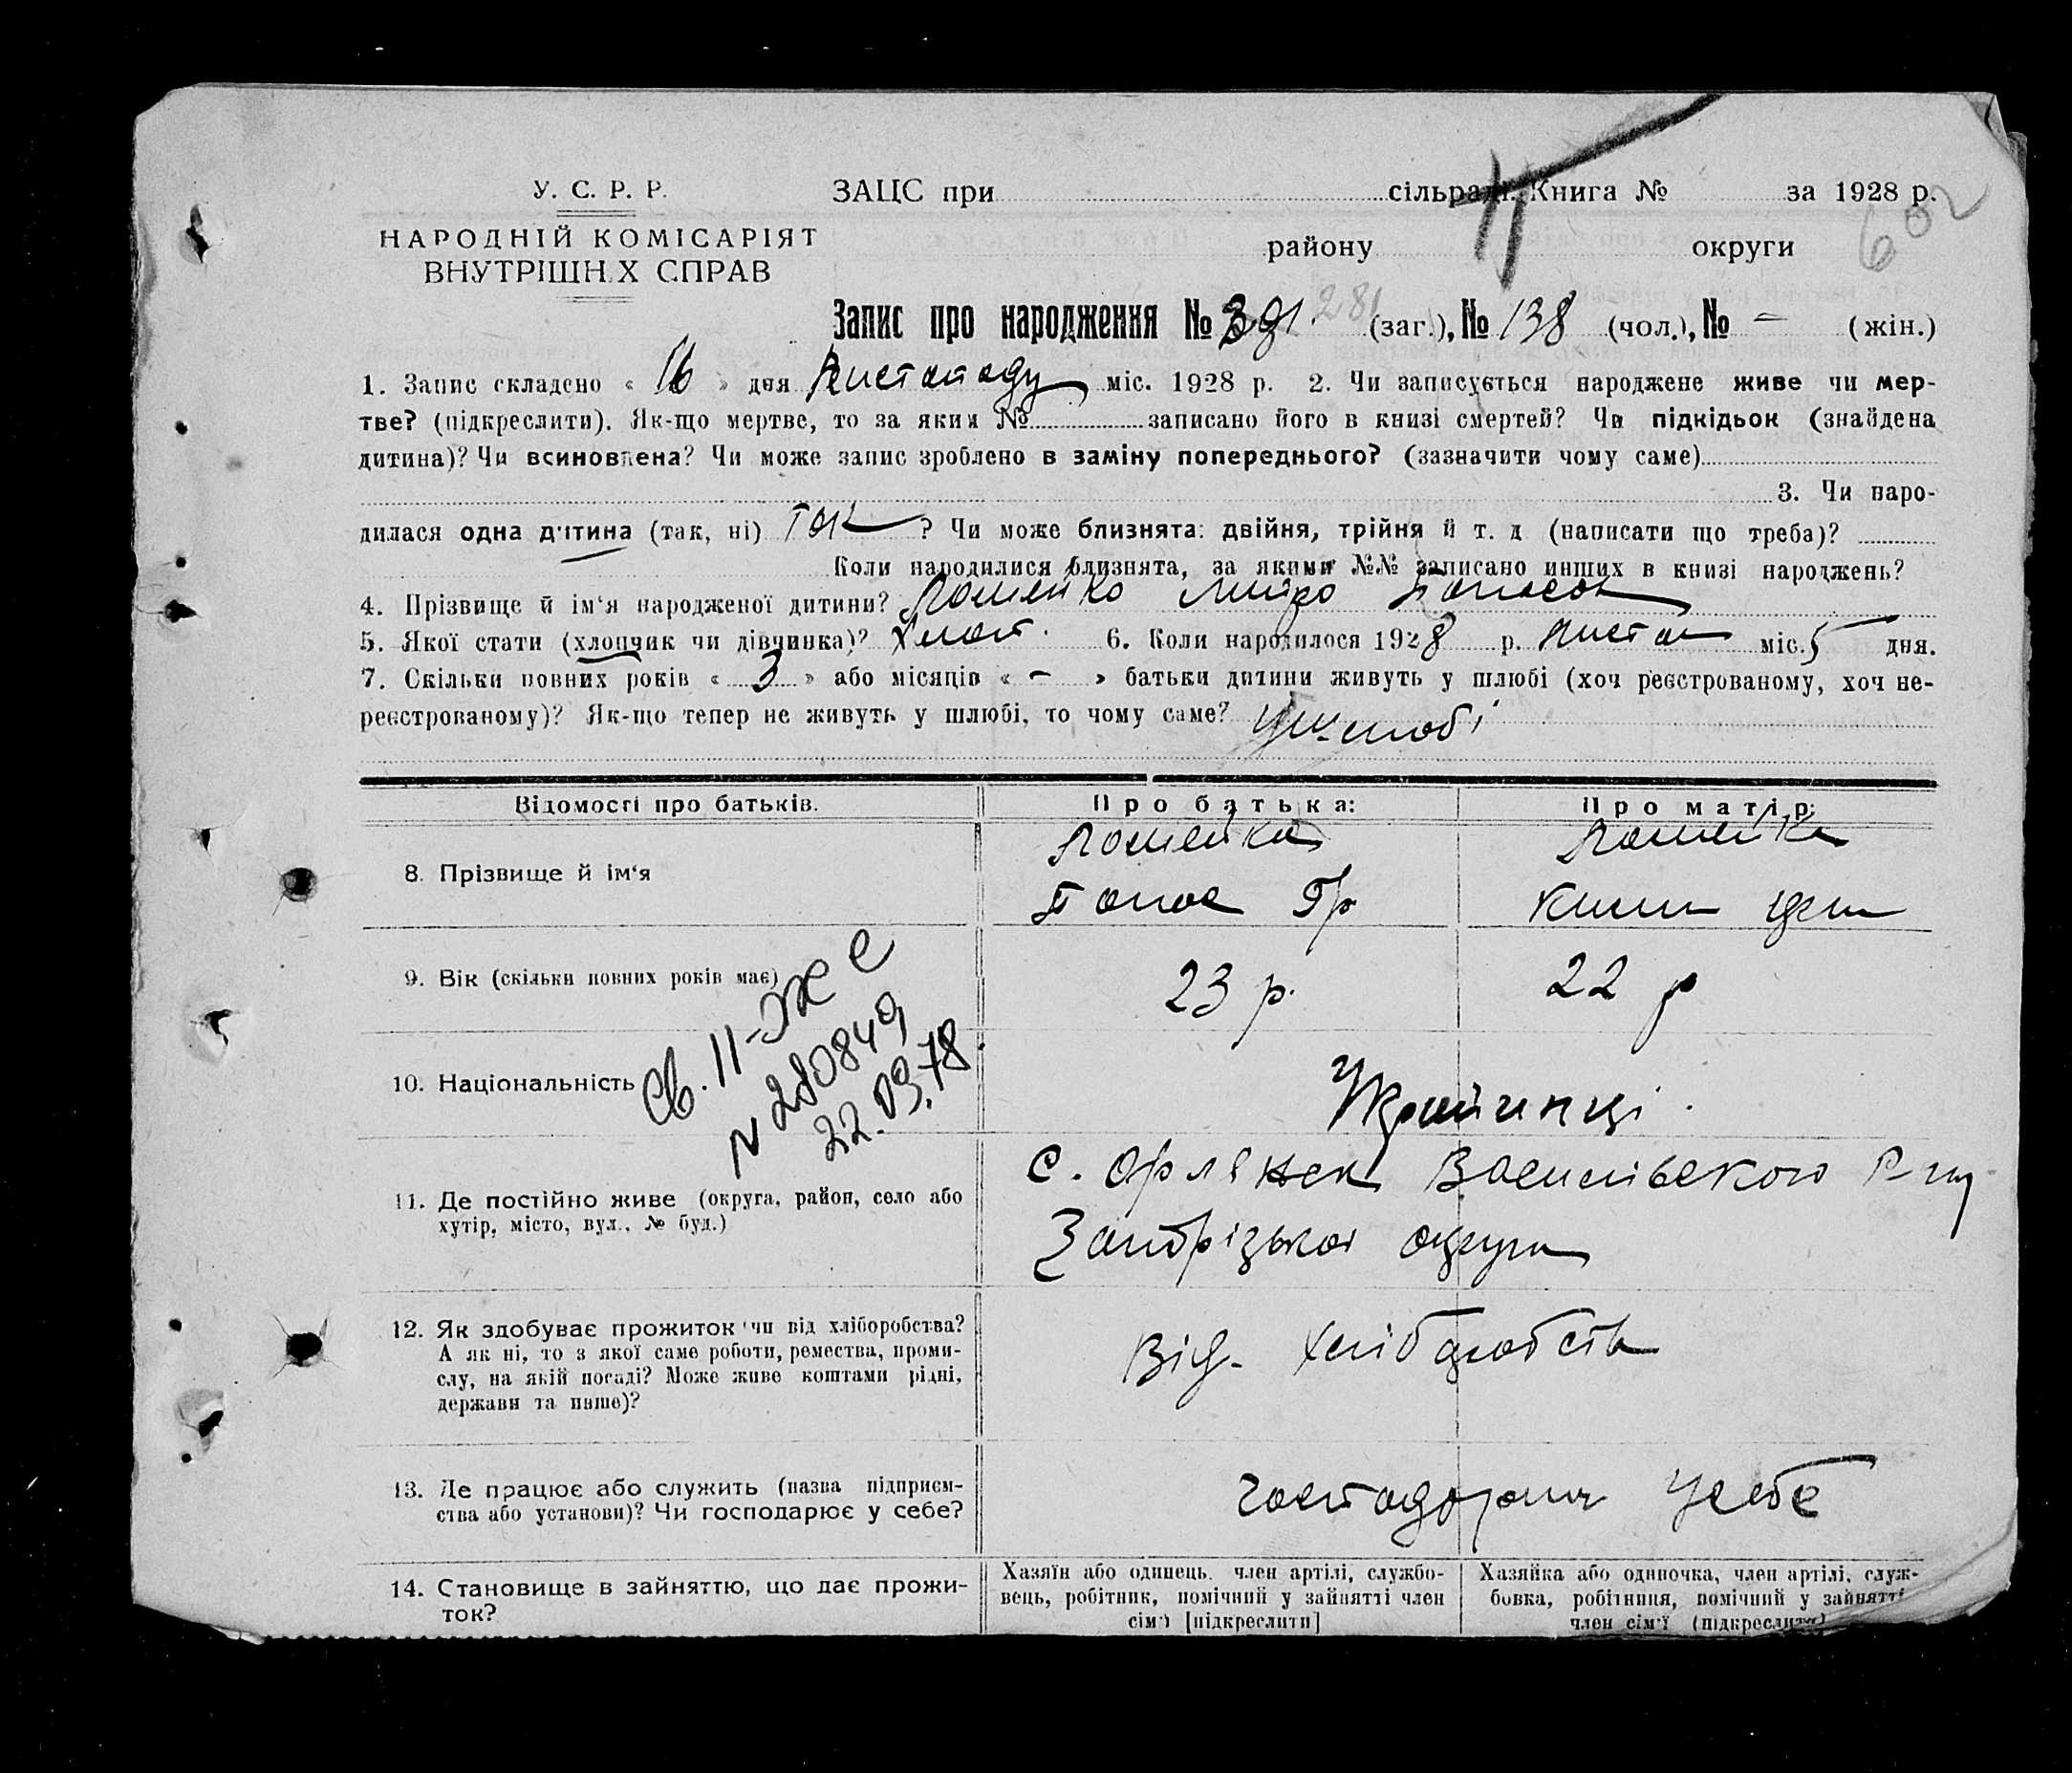 У. С. Р. Р.
ЗАЦС при сільраді. Книга № за 1928 р.
602
НАРОДНІЙ КОМІСАРІЯТ
ВНУТРІШНІХ СПРАВ
району округи
Запис про народження № 281 (заг.), № 138 (чол.), № – (жін.)
1. Запис складено « 16 » дня Листопаду міс. 1928 р. 2. Чи записується народжене живе чи мер-
тве? (підкреслити). Як-що мертве, то за яким № записано його в книзі смертей? Чи підкідьок (знайдена
дитина)? Чи всиновлена? Чи може запис зроблено в заміну попереднього? (зазначити чому саме)
3. Чи наро-
дилася одна дитина (так, ні) так ? Чи може близнята: двійня, трійня й т. д (написати що треба)?
Коли народилися близнята, за якими №№ записано инших в книзі народжень?
4. Прізвище й ім‘я народженої дитини?
5. Якої стати (хлопчик чи дівчинка)? хлоп. 6. Коли народилося 1928 р. листоп міс. 5 дня.
7. Скільки повних років « 3 » або місяців « – » батьки дитини живуть у шлюбі (хоч реєстрованому, хоч не-
реєстрованому)? Як-що тепер не живуть у шлюбі, то чому саме? У шлюбі
Відомості про батьків. Про батька: Про матір:
8. Прізвище й ім‘я
Панас Гр
9. Вік (скільки повних років має) 23 р. 22 р
10. Національність Українці.
св. II-ЖС
N 280849
22.03.78.
11. Де постійно живе (округа, район, село або
хутір, місто, вул., № буд.)
с. Орлянськ Василівського Р-ну
Запорізької округи
12. Як здобуває прожиток чи від хліборобства?
А як ні, то з якої саме роботи, ремества, проми-
слу, на якій посаді? Може живе коштами рідні,
держави та инше)?
Від хліборобств
13. Де працює або служить (назва підприєм-
ства або установи)? Чи господарює у себе?
господорює у себе
14. Становище в зайняттю, що дає прожи-
ток?
Хазяїн або одинець, член артілі, службо-
вець, робітник, помічний у зайнятті член
сім‘ї [підкреслити]
Хазяйка або одиночка, член артілі, служ-
бовка, робітниця, помічний у зайнятті
член сім‘ї (підкреслити)